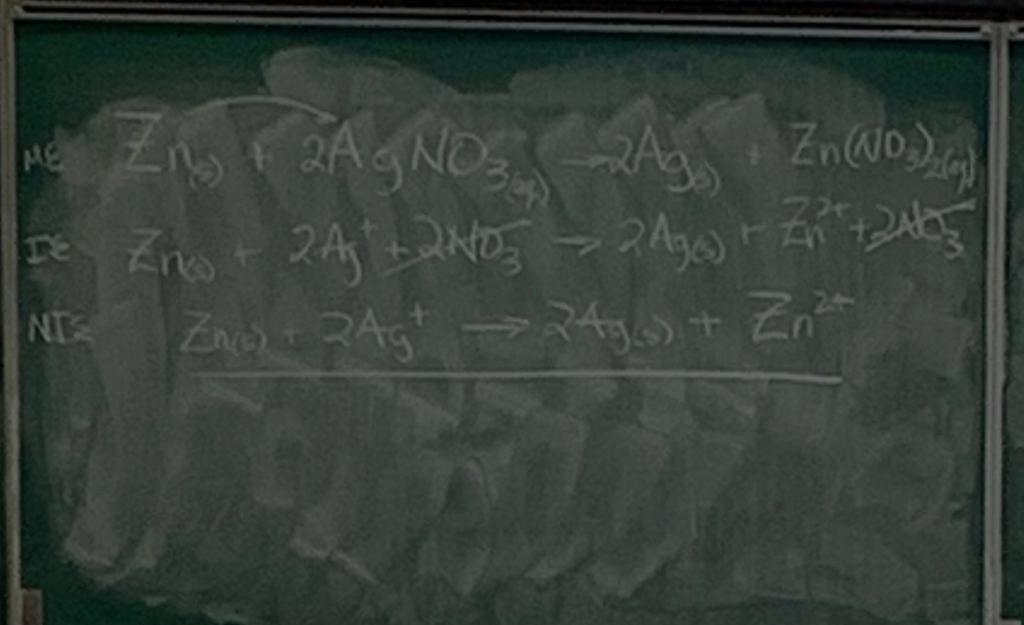 ME Zn(s) + 2AgNO3(aq) → 2Ag(s) + Zn(NO3)2(aq)
IE Zn(s) + 2Ag⁺ + 2NO3⁻ → 2Ag(s) + Zn²⁺ + 2NO3⁻
NIE Zn(s) + 2Ag⁺ → 2Ag(s) + Zn²⁺